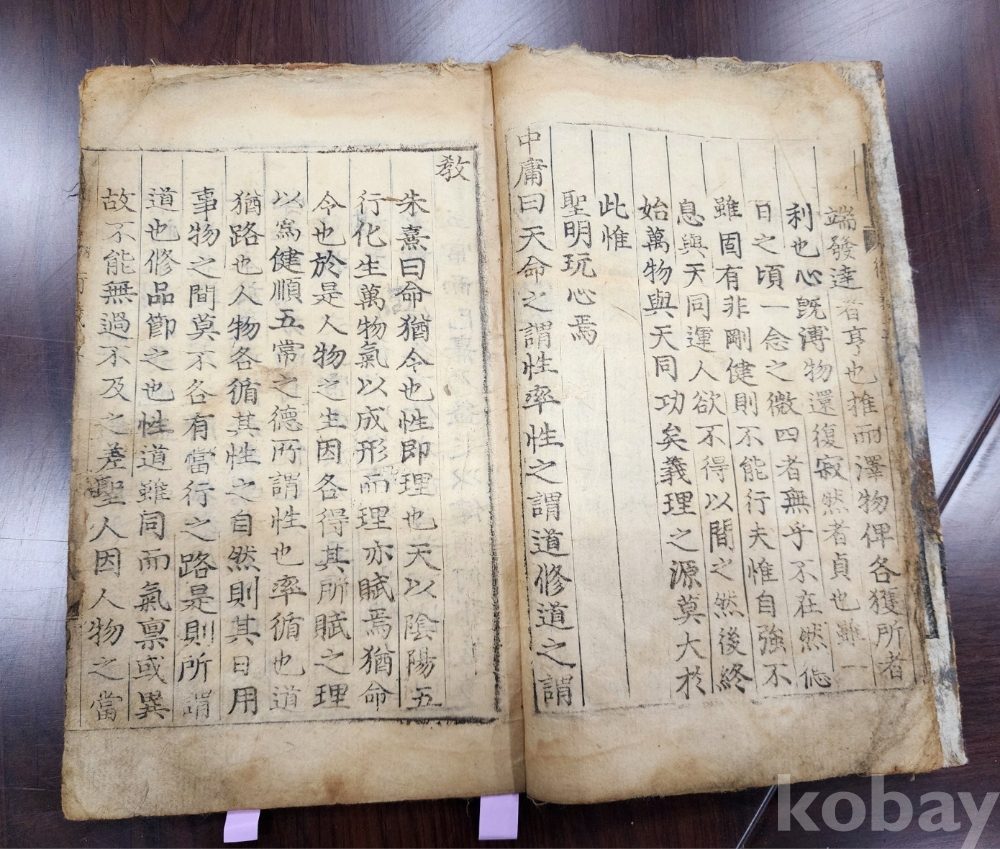 端發達者亨也推而澤物俾各獲所者
利也心旣溥物還復寂然者貞也雖一
日之頃一念之微四者無乎不在然德
雖固有非剛健則不能行夫惟自強不
息與天同運人欲不得以間之然後終
始萬物與天同功矣義理之源莫大於
此惟
聖明玩心焉
中庸曰天命之謂性率性之謂道修道之謂
敎
朱熹曰命猶令也性即理也天以陰陽五
行化生萬物氣以成形而理亦賦焉猶命
令也於是人物之生因各得其所賦之理
以爲健順五常之德所謂性也率循也道
猶路也人物各循其性之自然則其日用
事物之間莫不各有當行之路是則所謂
道也修品節之也性道雖同而氣禀或異
故不能無過不及之差聖人因人物之當
kobay